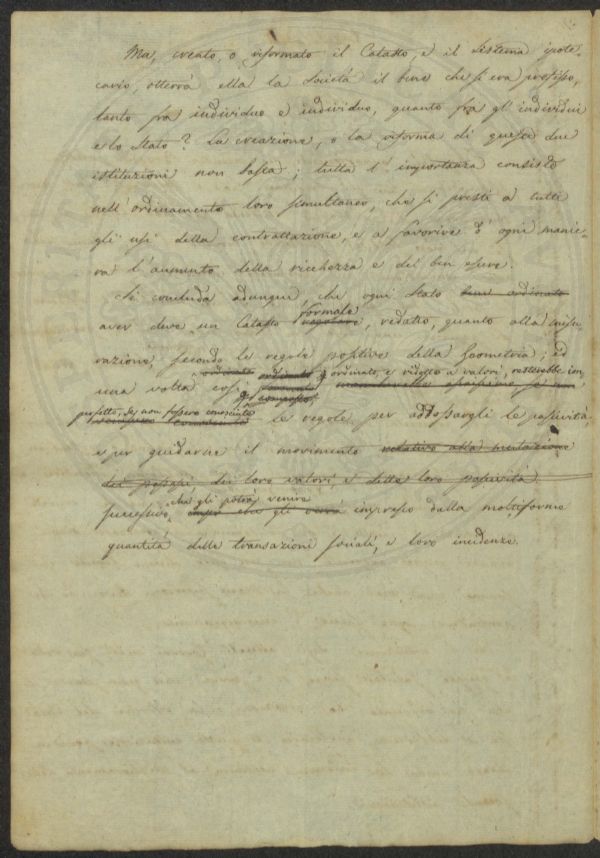 Ma, creato, o riformato il Catasto, e il Sistema ipote-
cario, otterrà ella la Società il bene che si era prefisso,
tanto fra individuo e individuo, quanto fra gl'individui
e lo Stato? La creazione, o la riforma di queste due
istituzioni non basta; tutta l'importanza consiste
nell'ordinamento loro simultaneo, che si presti a tutti
gli usi della contrattazione, e a favorire d'ogni manie-
ra l'aumento della ricchezza e del ben essere.
Si concluda adunque, che ogni Stato bene ordinato
formale
aver deve un Catasto regolare, redatto, quanto alla misu-
razione, secondo le regole positive della Geometria; ed
ordinato ordinato, e ridotto a valori, resterebbe im-
una volta così formato
composto
perfetto, se non fossero conosciute le regole per addossargli le passività
e per guidarne il movimento relativo alla mutazione
dei possessi dei loro valori, e delle loro passività
che gli potrà venire
successivo, impresso dalla moltiforme
quantità delle transazioni sociali, e loro incidenze.